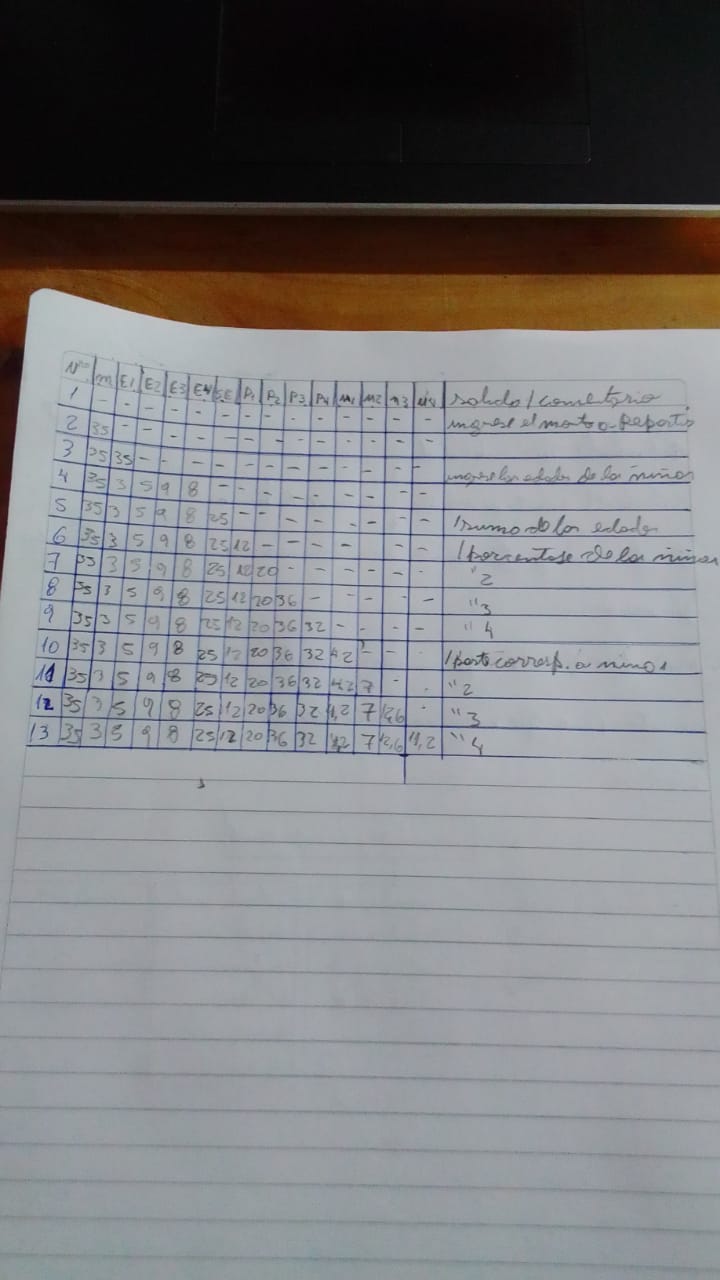 Nro m E1 E2 E3 E4 SE P1 P2 P3 P4 M1 M2 M3 M4 salida / comentario
1 - - - - - - - - - - - - - - ingrese el monto a Repartir
2 35 - - - - - - - - - - - - -
3 35 35 - - - - - - - - - - - - ingrese las edades de los niños
4 35 3 5 9 8 - - - - - - - - -
5 35 3 5 9 8 25 - - - - - - - - /suma de las edades
6 35 3 5 9 8 25 12 - - - - - - - /porcentaje de los niños
7 35 3 5 9 8 25 12 20 - - - - - - "2
8 35 3 5 9 8 25 12 20 36 - - - - - "3
9 35 3 5 9 8 25 12 20 36 32 - - - - "4
10 35 3 5 9 8 25 12 20 36 32 4,2 - - - /parte corresp. a niño 1
11 35 3 5 9 8 25 12 20 36 32 4,2 7 - - "2
12 35 3 5 9 8 25 12 20 36 32 4,2 7 12,6 - "3
13 35 3 5 9 8 25 12 20 36 32 4,2 7 12,6 11,2 "4